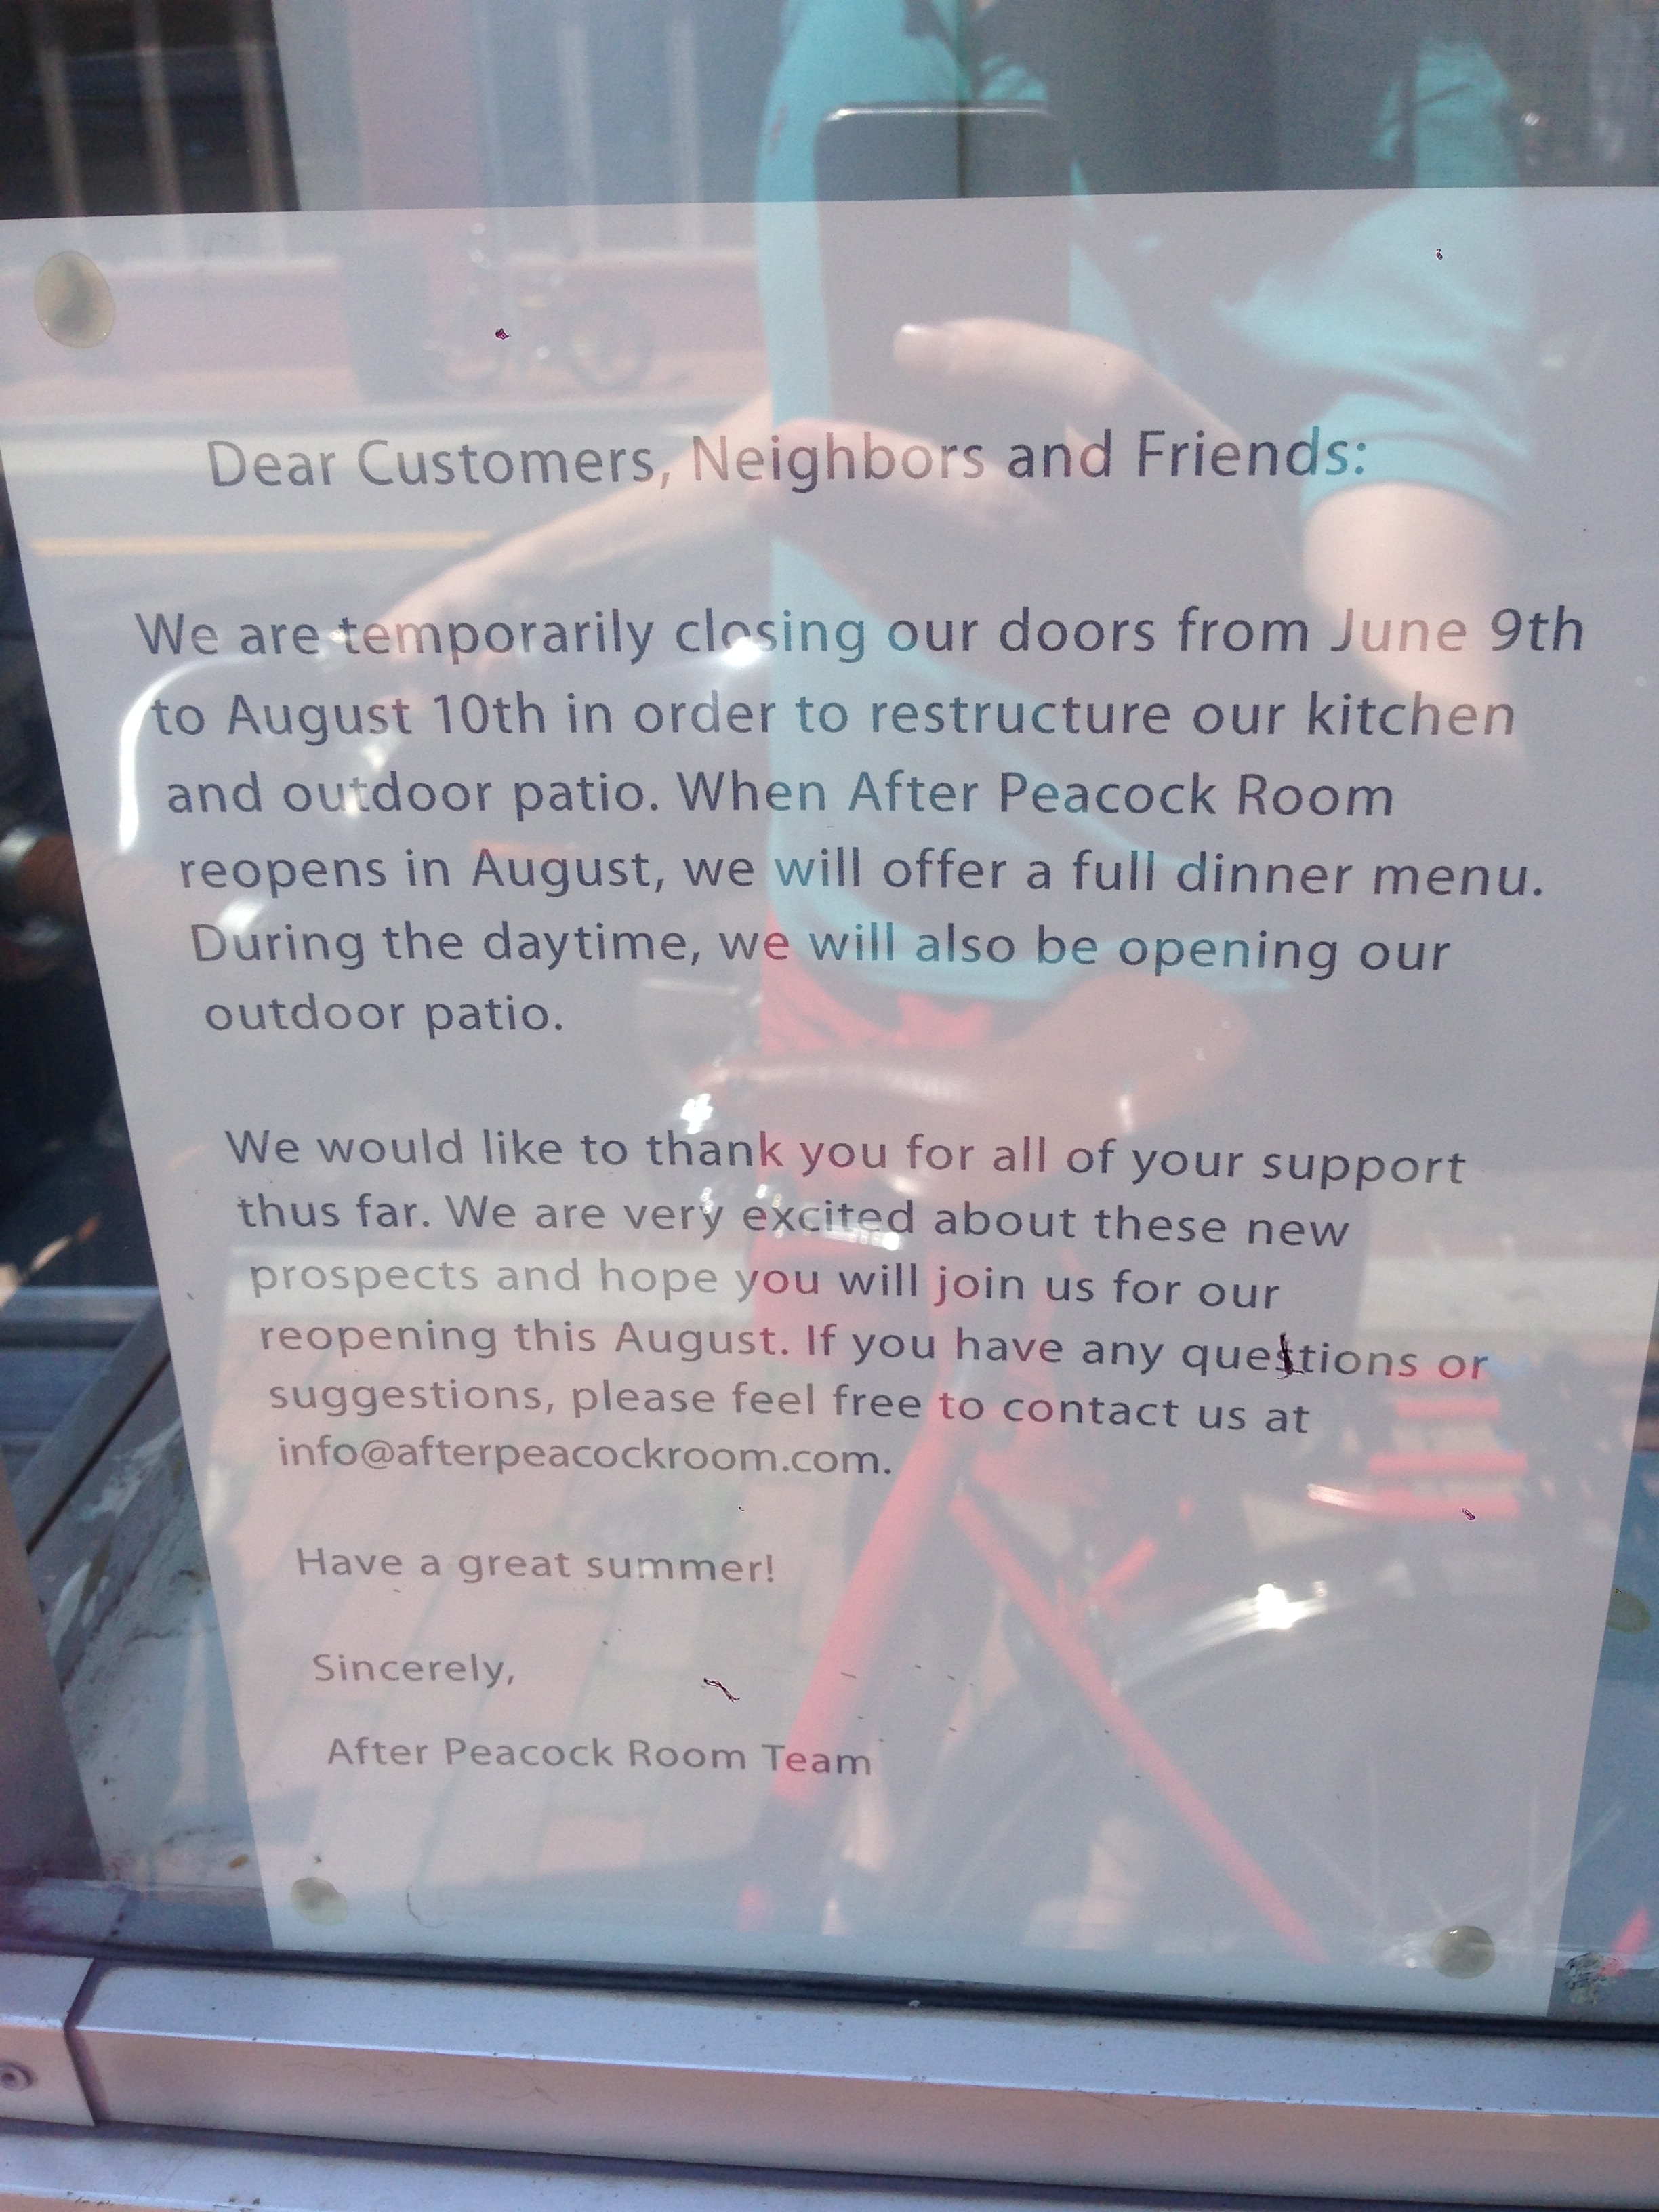 Dear Customers, Neighbors and Friends:
We are temporarily closing our doors from June 9th
to August 10th in order to restructure our kitchen
and outdoor patio. When After Peacock Room
reopens in August, we will offer a full dinner menu.
During the daytime, we will also be opening our
outdoor patio.
We would like to thank you for all of your support
thus far. We are very excited about these new
prospects and hope you will join us for our
reopening this August. If you have any questions or
suggestions, please feel free to contact us at
info@afterpeacockroom.com.
Have a great summer!
Sincerely,
After Peacock Room Team